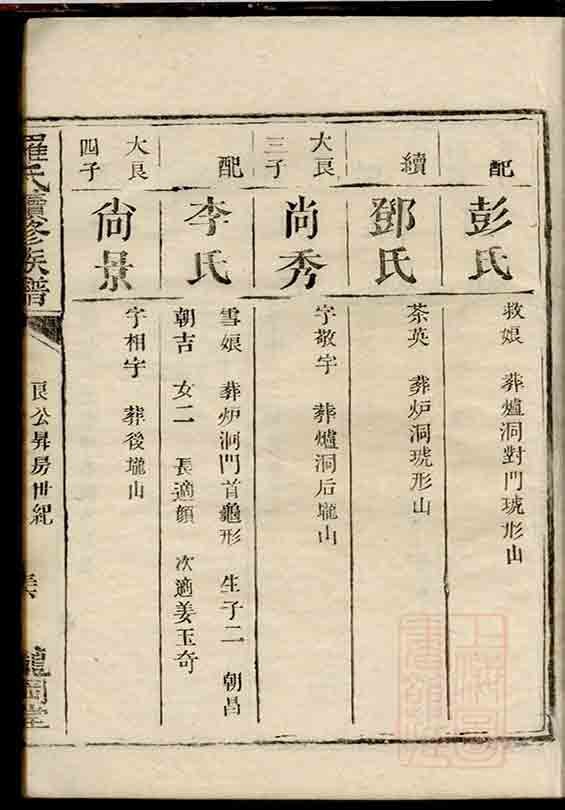 配
彭氏
救娘 葬爐洞對門琥形山
續
鄧氏
茶英 葬炉洞琥形山
大良
三子
尚秀
字敬宇 葬爐洞后壠山
配
李氏
雪娘 葬炉洞門首龜形 生子二 朝昌
朝吉 女二 長適顏 次適姜玉奇
大良
四子
尙景
字相宇 葬後壠山
羅氏續修族譜
良公昇房世紀
龍岡堂
上海圖
書館藏